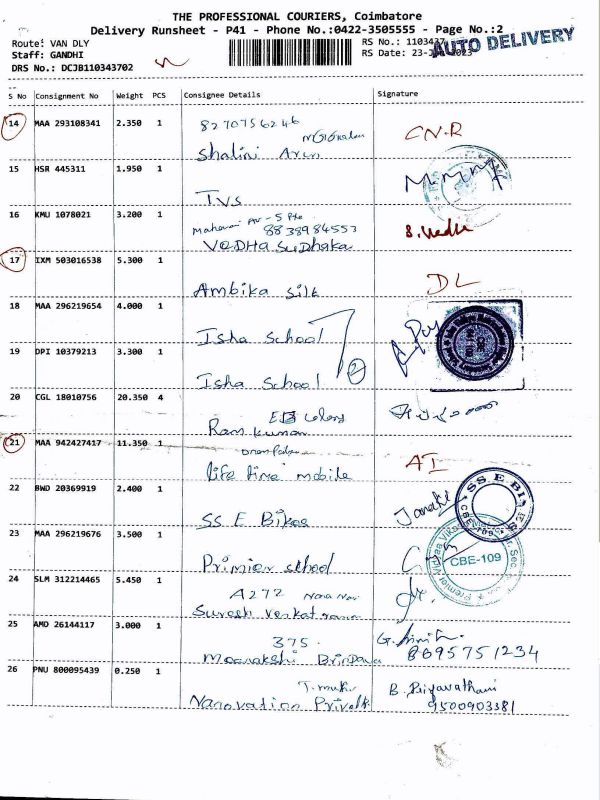 THE PROFESSIONAL COURIERS, Coimbatore
Delivery Runsheet - P41 - Phone No.:0422-3505555 - Page No.:2
Route: VAN DLY
RS No.: 1103437
AUTO DELIVERY
Staff: GANDHI
RS Date: 23-
DRS No.: DCJB110343702
S No Consignment No Weight PCS Consignee Details Signature
14 MAA 293108341 2.350 1 8270756246
Shalini Arun
CN.R
15 HSR 445311 1.950 1
TVS
16 KMU 1078021 3.200 1
8838984553
VEDHA SUDHAKA
17 IXM 503016538 5.300 1
Ambika Silk
DL
18 MAA 296219654 4.000 1
Isha School
19 DPI 10379213 3.300 1
Isha School
2
20 CGL 18010756 20.350 4
EB Colony
Ram kumar
21 MAA 942427417 11.350 1
life time mobile
AI
22 BWD 20369919 2.400 1
SS E Bikes
Janaki
SS E BI
23 MAA 296219676 3.500 1
Primier school
CBE-109
24 SLM 312214465 5.450 1 A272
Suresh Venkatraman
25 AMD 26144117 3.000 1 375
Meenakshi
8695751234
26 PNU 800095439 0.250 1
B. Priyavathani
9500903381